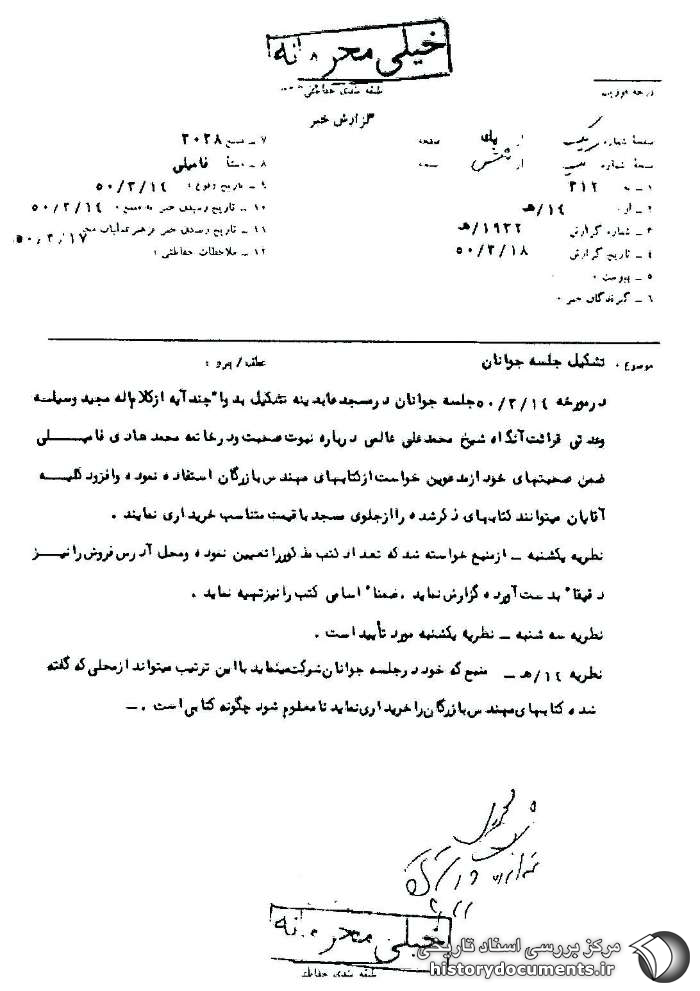 خیلی محرمانه
طبقه بندی حفاظتی
گزارش خبر
صفحهٔ شماره یک از صفحه
نسخهٔ شماره از شش نسخه
۱ ـ به ۳۱۲
۲ ـ از ۱۴/هـ
۳ ـ شماره گزارش ۱۹۳۲/هـ
۴ ـ تاریخ گزارش ۵۰/۳/۱۸
۵ ـ پیوست
۶ ـ گیرندگان خبر
۷ ـ منبع ۲۰۲۸
۸ ـ منشأ فامیلی
۹ ـ تاریخ وقوع ۵۰/۳/۱۴
۱۰ ـ تاریخ رسیدن خبر به منبع ۵۰/۳/۱۴
۱۱ ـ تاریخ رسیدن خبر برهبر عملیات ۵۰/۳/۱۷
۱۲ ـ ملاحظات حفاظتی :
موضوع : تشکیل جلسه جوانان عطف / پیرو :
درمورخه ۵۰/۳/۱۴ جلسه جوانان درمسجدعابدینه تشکیل بدوا" چندآیه ازکلام‌اله مجید وسیله
وحدتی قرائت آنگاه شیخ محمدعلی عالمی درباره نبوت صحبت ودرخاتمه محمدهادی فامیلی
ضمن صحبتهای خودازمدعوین خواست ازکتابهای مهندس بازرگان استفاده نموده وافزود کلیه
آقایان میتوانند کتابهای ذکرشده راازجلوی مسجد با قیمت مناسب خریداری نمایند .
نظریه یکشنبه ـ ازمنبع خواسته شد که تعداد کتب مذکورراتعیین نموده ومحل آدرس فروش رانیز
دقیقا" بدست آورده گزارش نماید ، ضمنا" اسامی کتب رانیزتهیه نماید .
نظریه سه شنبه ـ نظریه یکشنبه مورد تأیید است .
نظریه ۱۴/هـ ـ منبع که خود درجلسه جوانان شرکت مینماید با این ترتیب میتواند ازمحلی که گفته
شده کتابهای مهندس بازرگان راخریداری نماید تا معلوم شود چگونه کتابی است . ـ
خیلی محرمانه
طبقه بندی حفاظتی
مرکز بررسی اسناد تاریخی
historydocuments.ir